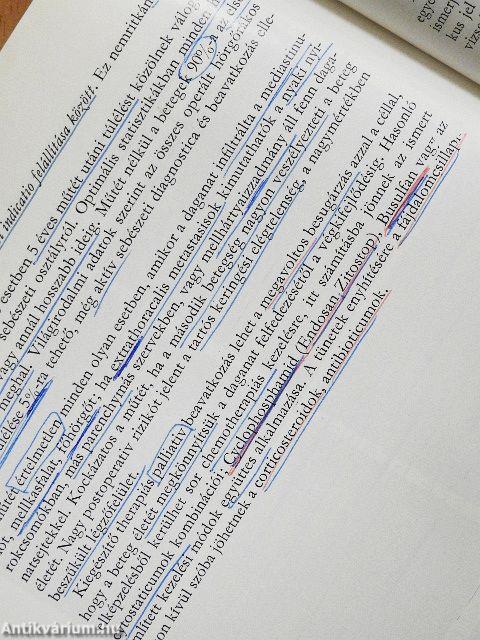 egye
ismerj
kus jel
vizsg
indicatio felállítása között. Ez nemritkán
esetben 5 éves műtét utáni túlélést közölnek válog
sebészeti osztályról. Optimális statisztikákban minden
vagy annál hosszabb ideig. Műtét nélkül a betegek 90%-a az
meghal. Világirodalmi adatok szerint az összes operált hörgőrákos
túlélése 5%-ra tehető, még aktív sebészeti diagnostica és beavatkozás elle-
értelmetlen minden olyan esetben, amikor a daganat infiltrálta a mediastinu-
mellkasfalat, zöfőeret; ha extrathoracalis metastasisok kimutathatók a nyaki nyi-
rokcsomókban, más parenchymás szervekben, vagy mellhártyaizzadmány áll fenn daga-
natsejtekkel. Kockázatos a műtét, ha a második betegség nagyon veszélyezteti a beteg
életét. Nagy postoperatív rizikót jelent a tartós keringési elégtelenség, a nagymértékben
beszűkült légzőfelület.
Kiegészítő therapiás palliatív beavatkozás lehet a megavoltos besugárzás azzal a céllal,
hogy a beteg életét megkönnyítsük a daganat felfedezésétől a végkifejlődésig. Hasonló
elképzelésből kerülhet sor chemotherapiás kezelésre, itt számításba jönnek az ismert
cytostaticumok kombinációi, Cyclophosphamid (Endosan, Zitostop), Busulfan vagy az
említett kezelési módok együttes alkalmazása. A tünetek enyhítésére a fájdalomcsillapí-
on kívül szóba jöhetnek a corticosteroidok, antibioticumok.
Antikvárium.hu